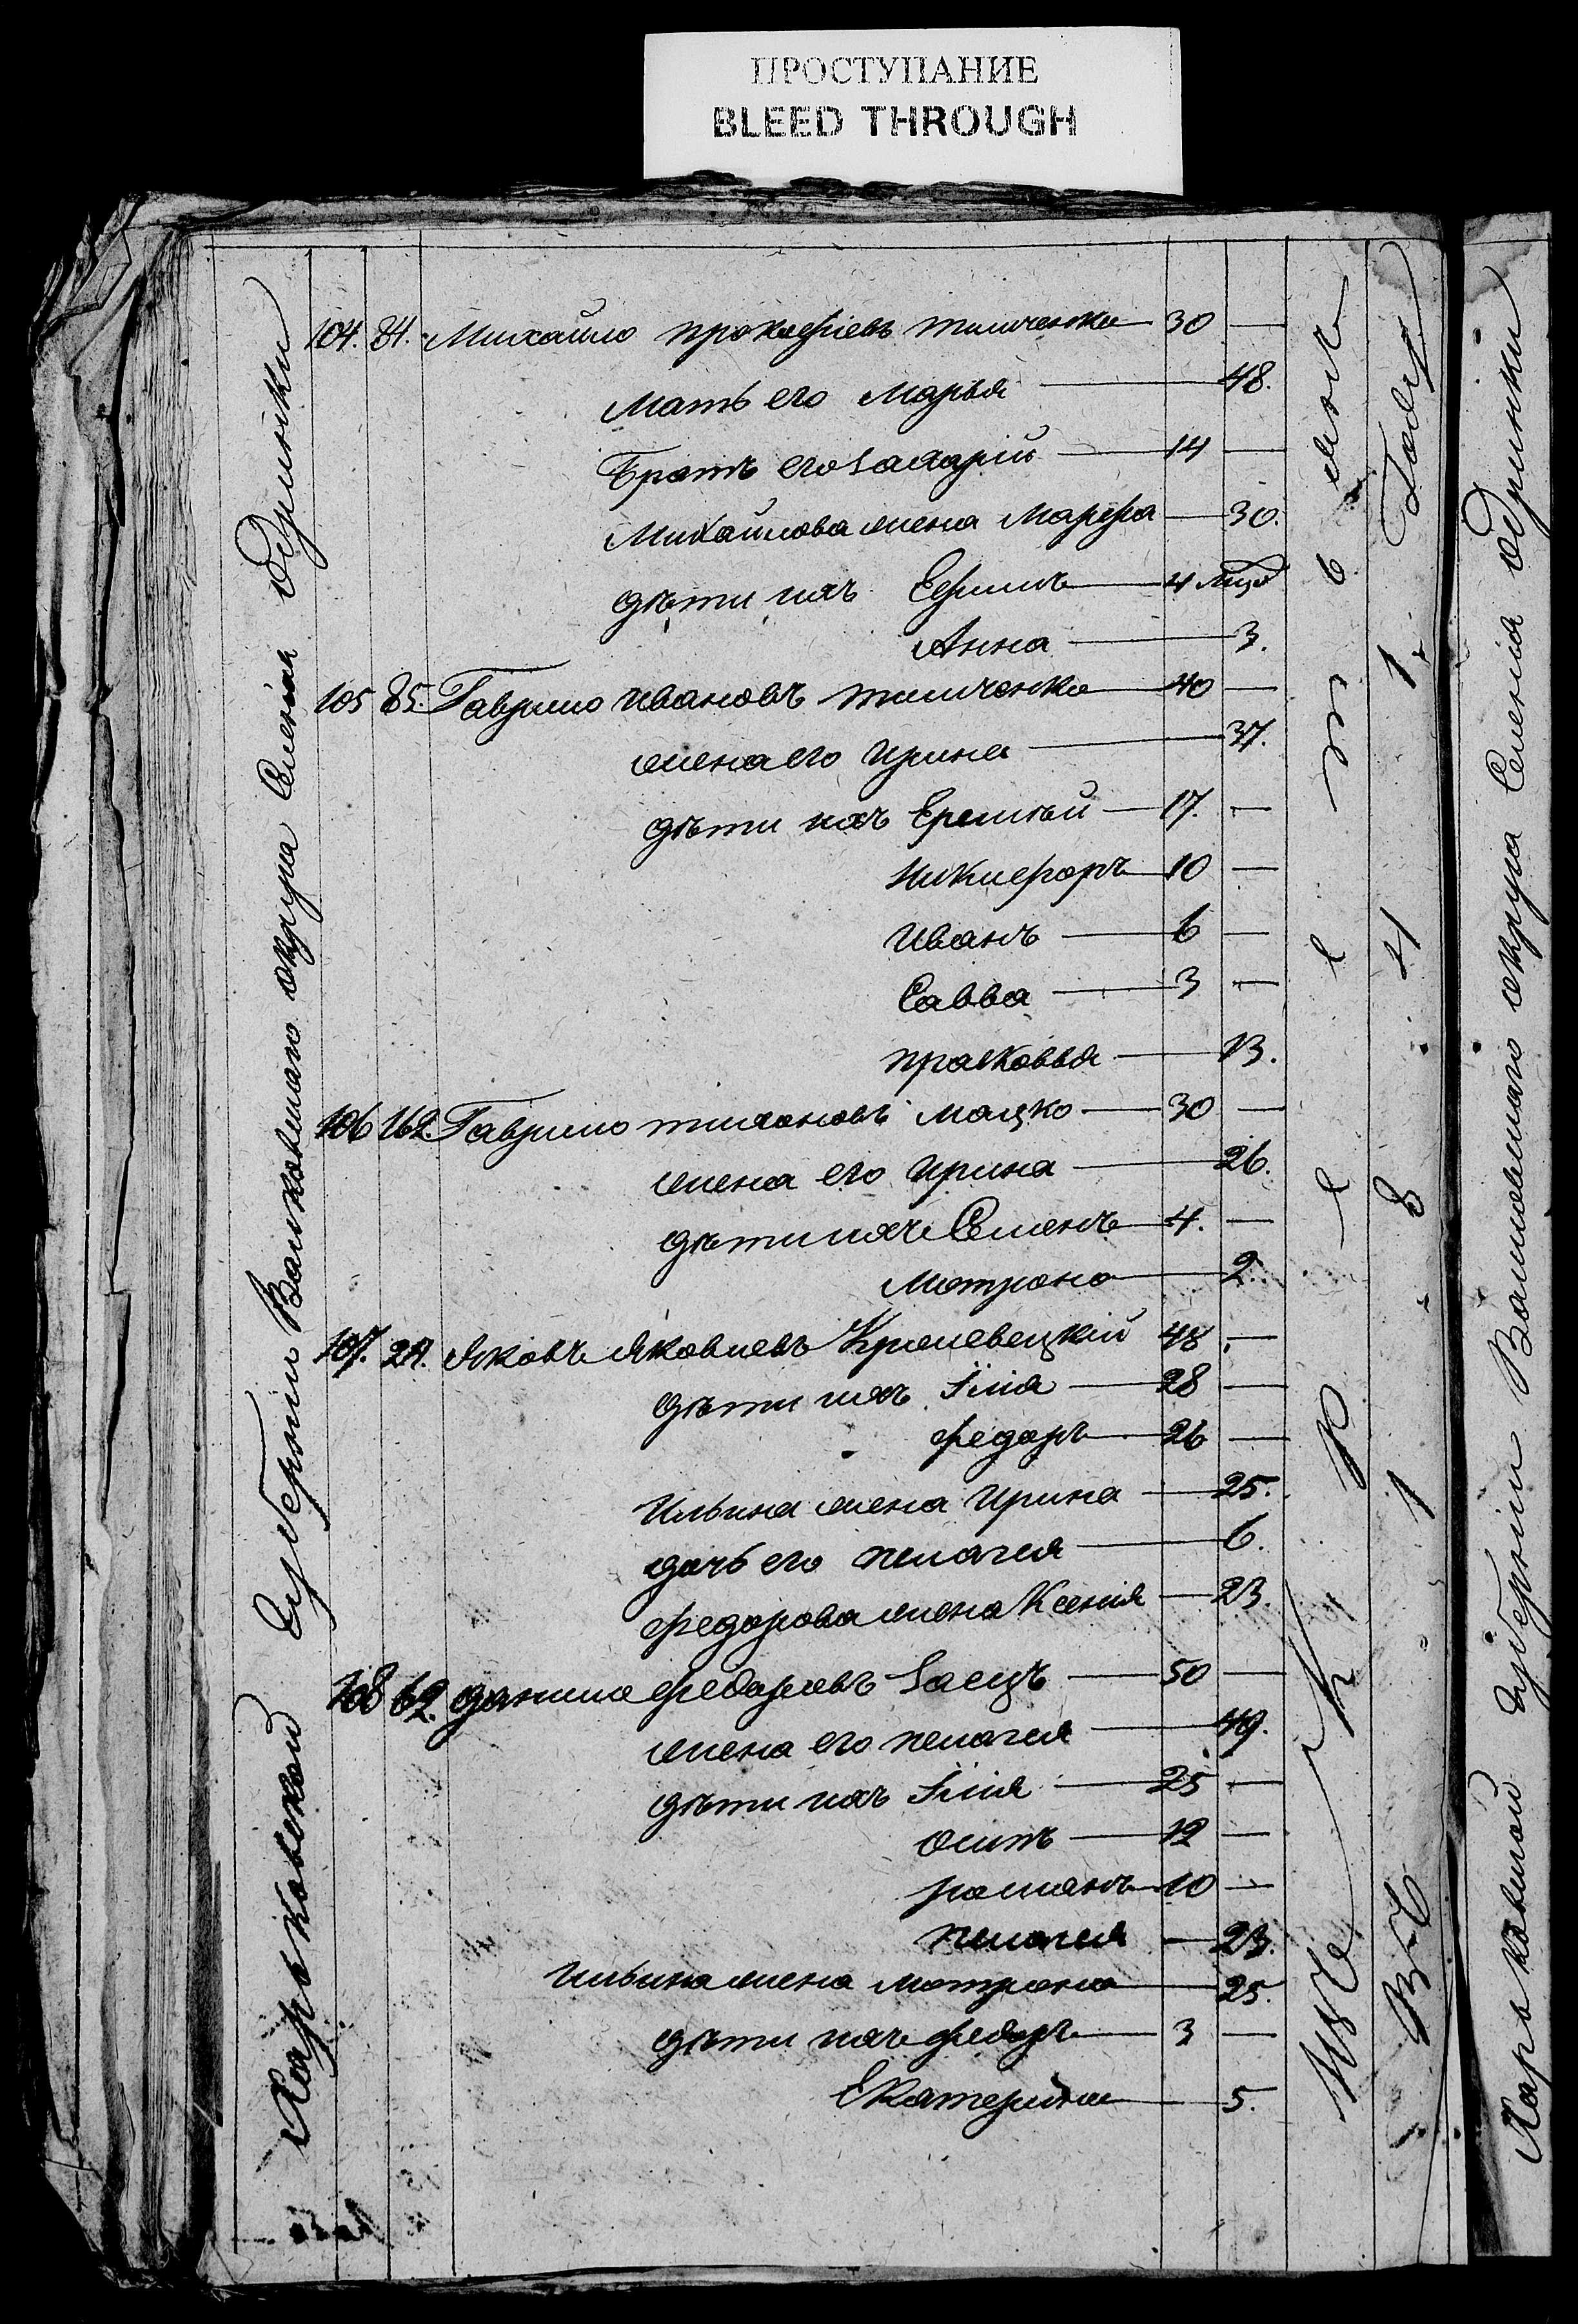 ПРОСТУПАНИЕ
BLEED THROUGH
Харьковской Губернии Валковского округа Селения Одринки
104. 84. Михайло прокофіевъ тимченко 30 —
Мать его Марья 48.
Братъ его Захарій 14 —
Михайлова жена Марфа 30.
дѣти ихъ Ефимъ 4 мѣся
Анна 3.
105 85. Гаврило ивановъ тимченко 40 —
жена его ирина 37.
дѣти ихъ Еремѣй 17. —
никифоръ 10 —
иванъ 6 —
Савва 3 —
прасковья 13.
106 162. Гаврило тихоновъ мацко 30 —
жена его ирина 26.
дѣти ихъ Семенъ 4. —
мотрона 2.
107. 27. Яковъ Яковлевъ Кролевецкій 48 —
дѣти ихъ Iлія 28 —
федоръ 26 —
Ильина жена ирина 25.
дочь его пелагея 6.
федорова жена Ксенія 23.
108 62. данило федоровъ Заецъ 50 —
жена его пелагея 49.
дѣти ихъ Iлія 25 —
осипъ 12 —
романъ 10 —
пелагея 23.
ильина жена мотрона 25.
дѣти ихъ федоръ 3 —
Екатерина 5.
В Ъ 1 8 4 1 Году
Харьковской Губернии Валковского округа Селения Одринки